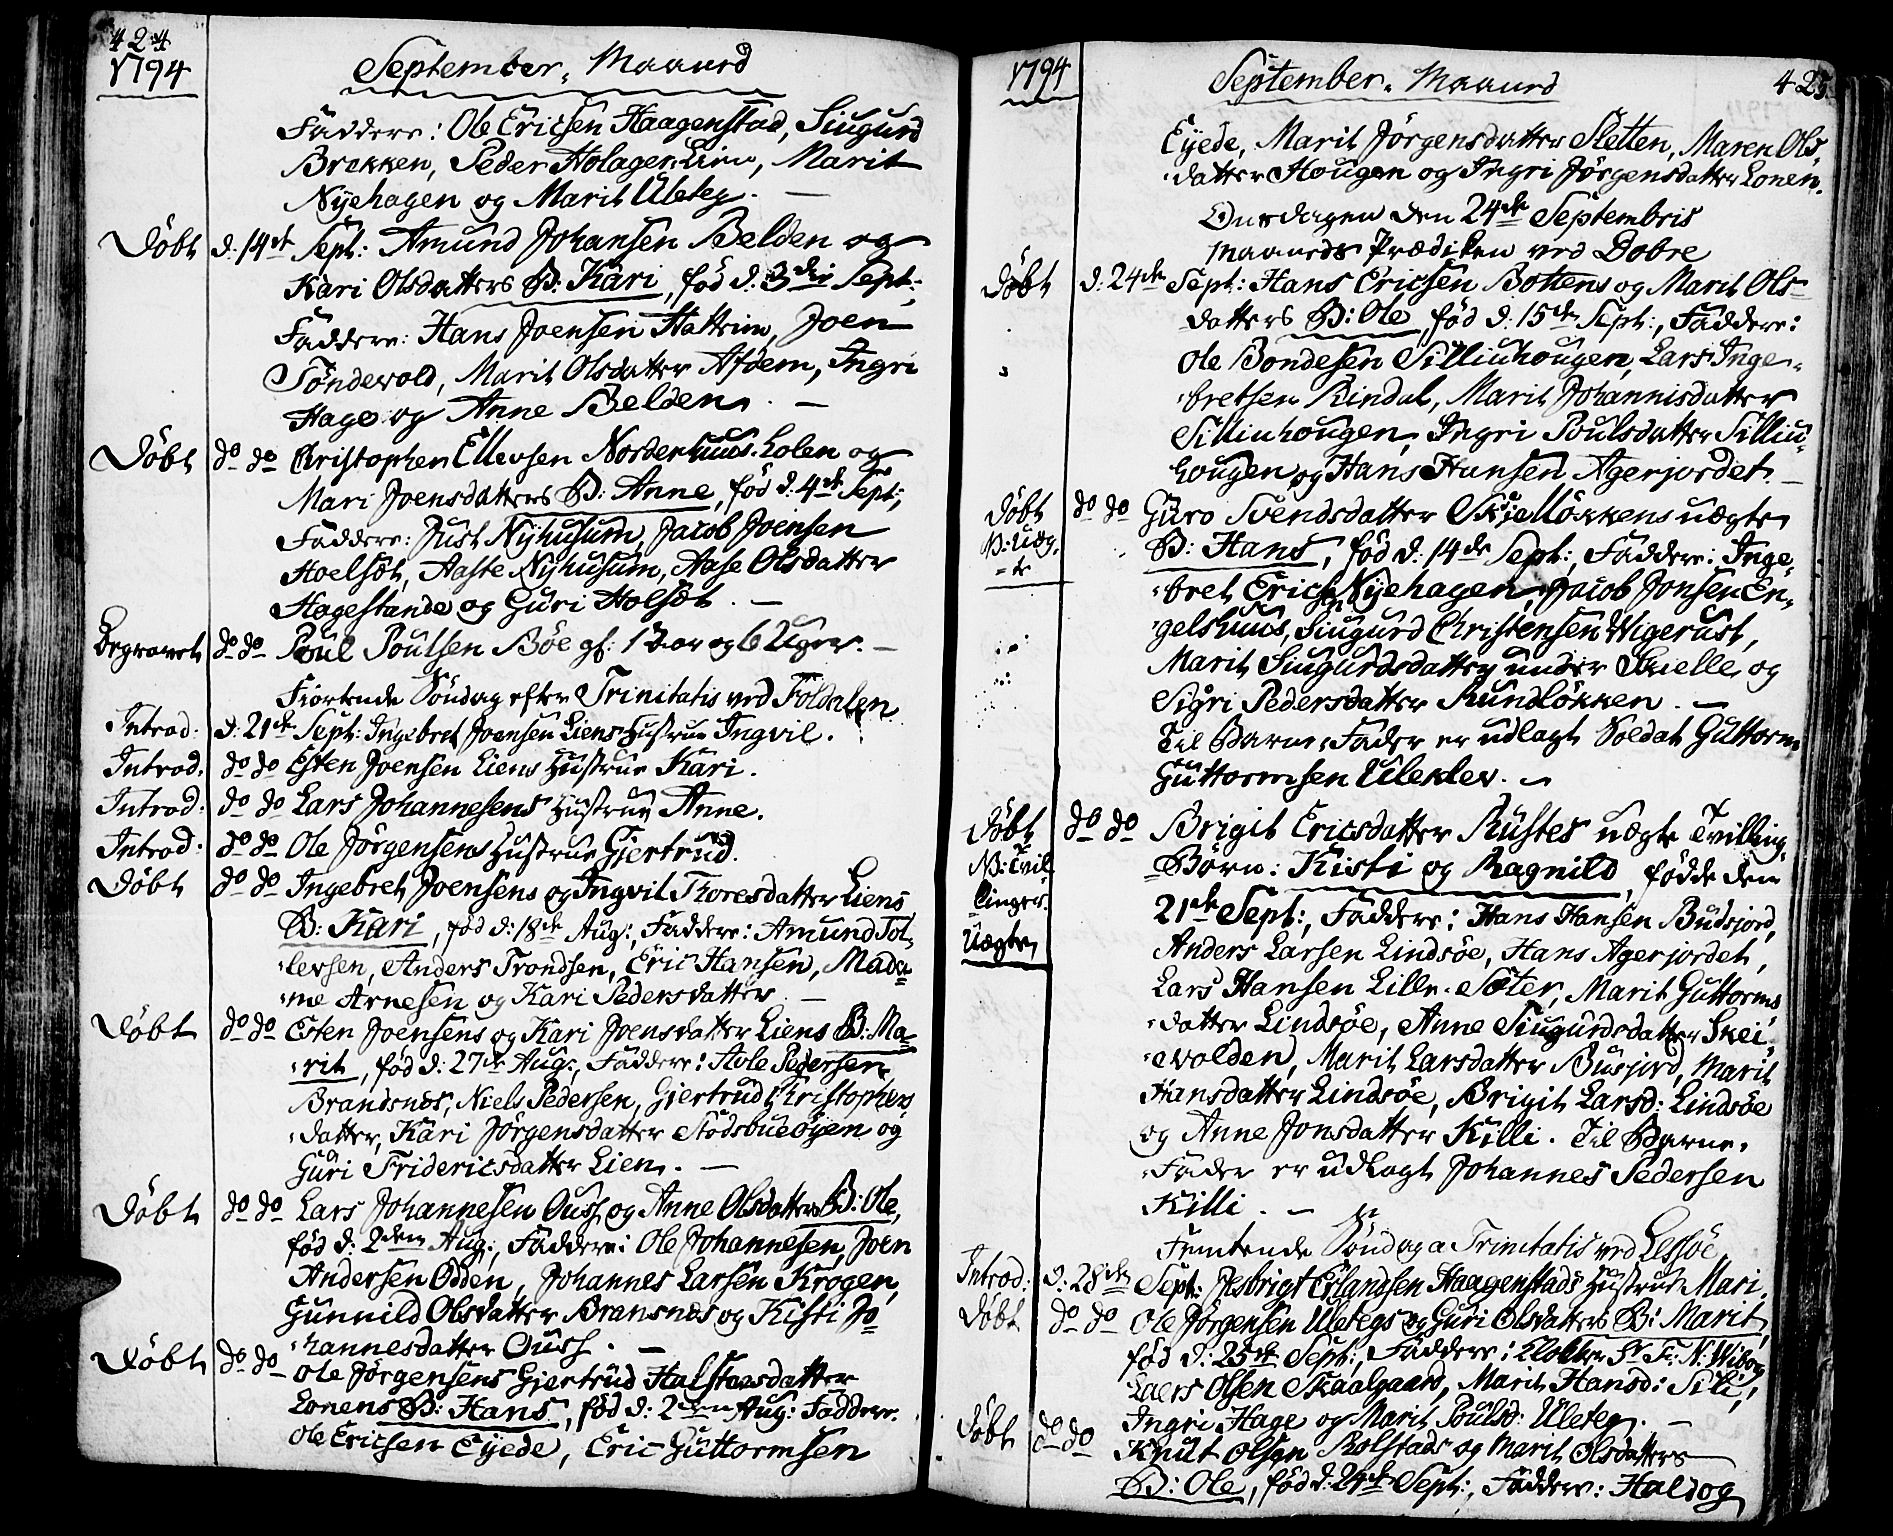 424
1794
September Maaned
Faddere: Ole Ericsen Haagenstad, Siugurd
Brekken, Peder Holager Lien, Marit
Nyehagen og Marit Uleteg. —
Döbt d: 14de Sept: Amund Johansen Belden og
Kari Olsdatters B: Kari, föd d: 3die Sept:,
Faddere: Hans Joensen Hattrim, Joen
Töndevold, Marit Olsdatter Afdem, Ingri
Hage og Anne Belden. —
Döbt do do Christopher Ellevsen Norderhuus Lolen og
Mari Joensdatters B: Anne, föd d: 4de Sept:,
Faddere: Just Nyhusum, Jacob Joensen
Hoelsöt, Aaste Nyhusum, Aase Olsdatter
Hagestande og Guri Holsöt. —
Begravet do do Poul Poulsen Böe gl: 1 Aar og 6 Uger. —
Fiortende Söndag efter Trinitatis ved Foldalen
Introd: d: 21de Sept: Ingebret Joensen Liens Hustrue Ingvil.
Introd: do do Esten Joensen Liens Hustrue Kari.
Introd: do do Lars Johannesens Hustrue Anne.
Introd: do do Ole Jörgensens Hustrue Gjertrud.
Döbt do do Ingebret Joensens og Ingvil Thoresdatter Liens
B: Kari, föd d: 18de Aug:, Faddere: Amund Tol-
levsen, Anders Trondsen, Eric Hansen, Mada-
me Arnesen og Kari Pedersdatter. —
Döbt do do Esten Joensens og Kari Joensdatter Liens B: Ma-
rit, föd d: 27de Aug:, Faddere: Hole Pedersen
Brandsnæs, Niels Pedersen, Gjertrud Christophers
datter, Kari Jörgensdatter Stodsbueöyen og
Guri Fridericsdatter Lien. —
Döbt do do Lars Johannesen Ouss og Anne Olsdatters B: Ole,
föd d: 2den Aug:, Faddere: Ole Johannesen, Joen
Andersen Odden, Johannes Larsen Krogen,
Gunnild Olsdatter Bransnæs og Kisti Jo-
hannesdatter Ouss. —
Döbt do do Ole Jörgensens Gjertrud Halstensdatter
Lonens B: Hans, föd d: 2den Aug: Faddere:
Ole Ericsen Eyede, Eric Guttormsen
1794
September Maaned
425
Eyede, Marit Jörgensdatter Sletten, Maren Ols-
datter Hougen og Ingri Jörgensdatter Lonen.
Onsdagen den 24de Septembris
Maaneds Prædiken ved Dovre
Döbt d: 24de Sept: Hans Ericsen Bottens og Marit Ols-
datters B: Ole, föd d: 15de Sept:, Faddere:
Ole Bondesen Silliuhougen, Lars Inge-
bretsen Rindal, Marit Johannisdatter
Silliuhougen, Ingri Poulsdatter Silliu-
hougen og Hans Hansen Agerjordet. —
Döbt do do Guro Svendsdatter Skjellökkens uægte
N: Uæg-
te
B: Hans, föd d: 14de Sept:, Faddere: Inge-
bret Erics: Nyehagen, Jacob Jonsen En-
gelshuus, Siugurd Christensen Wigerust,
Marit Siugurdsdatter under Skielle og
Sigri Pedersdatter Rundlökken. —
Til Barne-Fader er udlagt Soldat Guttorm
Guttormsen Uleklev. —
Döbt do do Brigit Ericsdatter Rustes uægte Tvilling
N: Tvil-
linger.
Uægte
Börn: Kisti og Ragnild, födde den
21de Sept:, Faddere: Hans Hansen Budsjord,
Anders Larsen Lindsöe, Hans Agerjordet,
Lars Hansen Lille-Sæter, Marit Guttorms
datter Lindsöe, Anne Siugurdsdatter Skei-
evolden, Marit Larsdatter Busjord, Marit
Hansdatter Lindsöe, Brigit Larsd: Lindsöe
og Anne Jonsdatter Killi. Til Barne-
Fader er udlagt Johannes Pedersen
Killi. —
Femtende Söndag a Trinitatis ved Lessöe
Introd: d: 28de Sept: Jesbrigt Erlandsen Haagenstads Hustrue Mari.
Döbt do do Ole Jörgensen Uletegs og Guri Olsdatters B: Marit,
föd d: 25de Sept:, Faddere: Klokker Sr Fr: N: Wiborg
Laers Olsen Skaalgaard, Marit Hansd: Sili,
Ingri Hage og Marit Poulsd: Uleteg. —
Döbt do do Knut Olsen Rolstads og Marit Olsdatters
B: Ole, föd d: 24de Sept:, Faddere: Haldog